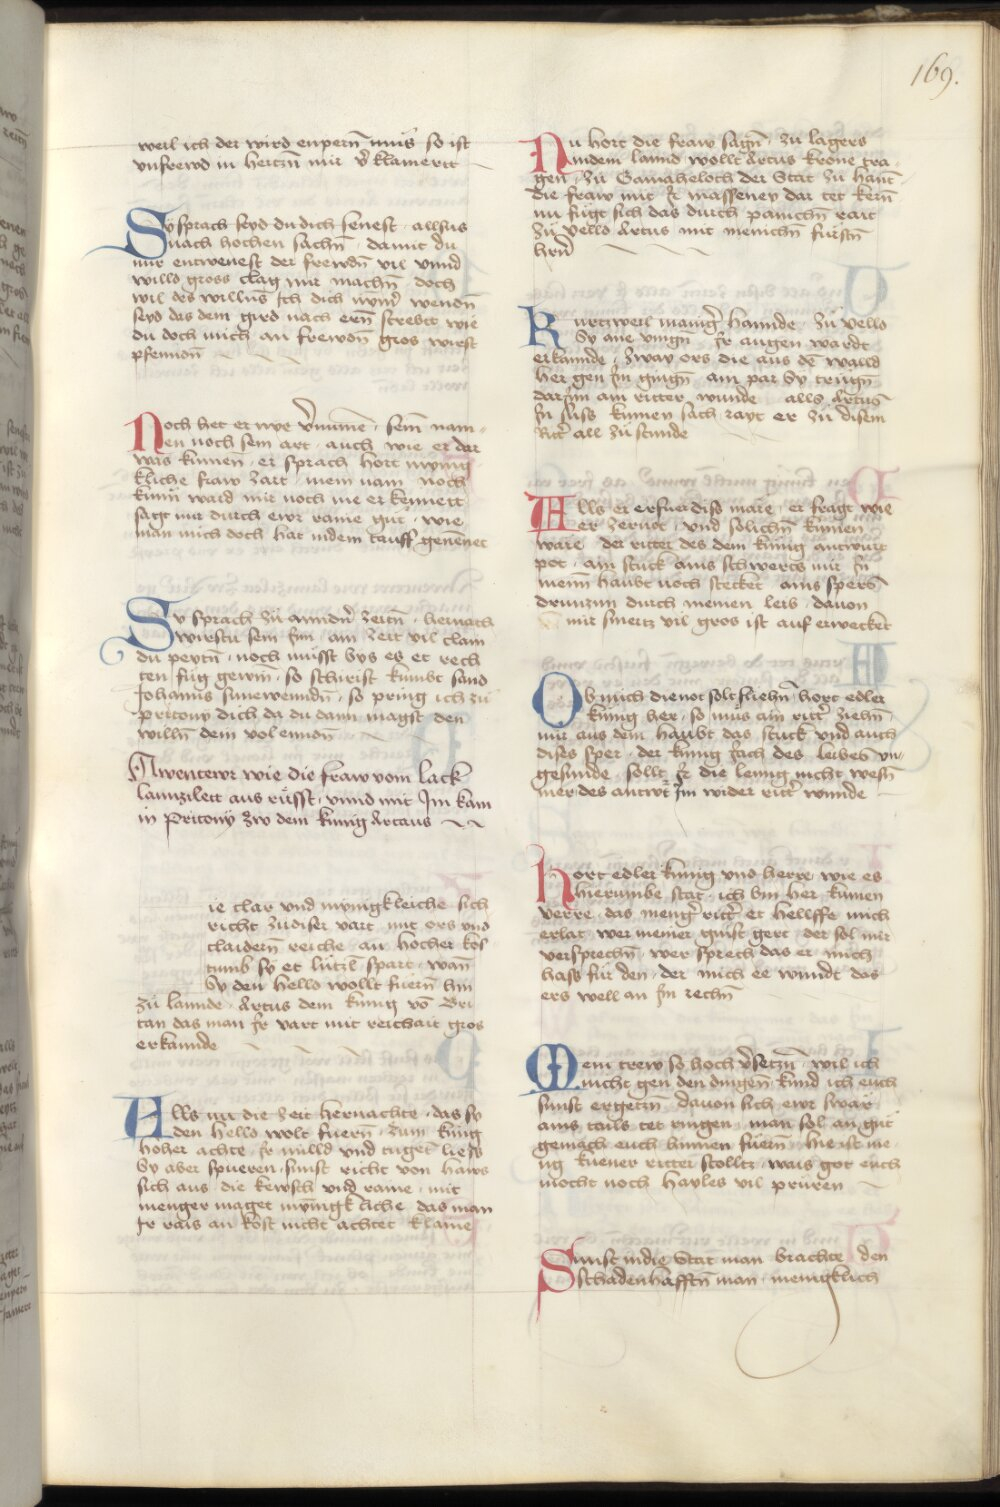 169.
weil ich der wird enpern̄ mus so ist
vnfrewd in hertzn̄ mir v̓klamertt
Sy sprach seyd du dich senest · allsus
nach hochen sachn̄ · damit du
mir entwenest der frewdn̄ vil vnnd
willd gross clag mir machn̄ · doch
wil des willns Ich dich nym̓ wendn̄
seyd das dem gird nach ern̄ strebtt wie
du doch mich an frewdn̄ gros wirst
pfenndn̄
Noch het er nye v̓nume · sein nam
en noch sein art · auch wie er dar
was kumen · er sprach hort mynig
kliche fraw zart · mein nam noch
kunn ward mir noch nie erkennett
sagt mir durch ewr raine gut · wie
man mich doch hat indem tauff genenet
Sy sprach zu anndn̓ zeitn̄ · hernach
wirstu sein Inn · ain zeit vil clain
du peytn̄ · noch müsst bys es et rech
ten fug gewin̄ · so schirist kumbt sand
Johanns sunewenndn̄ · so pring ich zu
pritony dich da du dann magst den
willn̄ dem vol enndn̄
Awentewr wie die fraw vom lack
lannzilett aus rüsst · vnnd mit Im kam
in Pritony zw dem kunig Artaus
ie clar vnd mynigkleiche sich
richt zudiser vart mit ors vnd
claidern̄ reiche · an hocher kos
tumb sy et lützl spart · wan̄
Sy den helld wollt fuern̄ hin
zu lannde · Artus dem kunig vo̅ Bri
tan das man Ir vart mit reichait gros
erkannde
Alls nu die zeit hernachte · das sy
den helld wolt fuern̄ · zum kunig
hoher achte · Ir milld vnd tugent̄ liess
Sy aber spueren · sunst richt von haws
sich aus · die kewsch vnd raine · mit
menger maget mynigkliche das man
Ir rais an kost nicht achtet klaine
Nu hort die fraw sagn̄ · zu lagers
indem lannd wollt Artus krone tra
gen · zu Gamaheloth der Stat zu hant̄
die fraw mit Ir masseney dar tet kern̄
nu fügt sich das durch panichn̄ rait
zu velld Artus mit menichn̄ fürstn̄
hern̄
Kurtzweil manig̓ hannde · zu velld
Sy ane vingn̄ · Ir augen wardt
erkannde · zway ors die aus de̅ walld
her gen In gingn̄ · am par Sy trugn̄
darInn ain ritter wunde · alls Artus
In suss kumen sach rayt er zu disem
Ritt̓ all zu stunde
Alls er erfuer diso mare · er fragt wie
er zernot · vnd solichn̄ kumen
ware · der ritter des dem kunig antwurt
pot · ain stuck ains schwerts mir In
meim haubt noch stecket · ains spers
drunzun durch meinen leib · dauon
mir smertz vil gros ist auf erwecket
Ob mich die not solt fliehn̄ hort edler
kunig her · so mus ain ritt̓ ziehn̄
mir aus dem haubt das stuck vnd auch
dises sper · der kunig sach des leibes vn
gesunde · sollt Ir die lenng nicht wesn̄
mer des antwt̓ Im wider ritt̓ wunde
Hort edler kunig vnd herre · wie es
hierumbe stat · ich bin her kumen
verre · das meng̓ ritt̓ et hellffe mich
erlat · wer meiner gunst gert · der sol mir
versprechn̄ · wer sprech das er mich
hass für den · der mich ee wundt das
ers well an Im rechn̄
Mein trew so hoch v̓setzn̄ · wil ich
nicht gen den dingen̄ · kund ich euch
sunst ergetzn̄ dauon sich ewr swar
ains tails tet ringen · man sol an gut
gemach euch hinnen fuern̄ hie ist me
nig kuener ritter stolltz · wais got euch
mocht noch hayles vil prüren
Sunst indie Stat man brachte den
schadenhafftn̄ man · menigklich